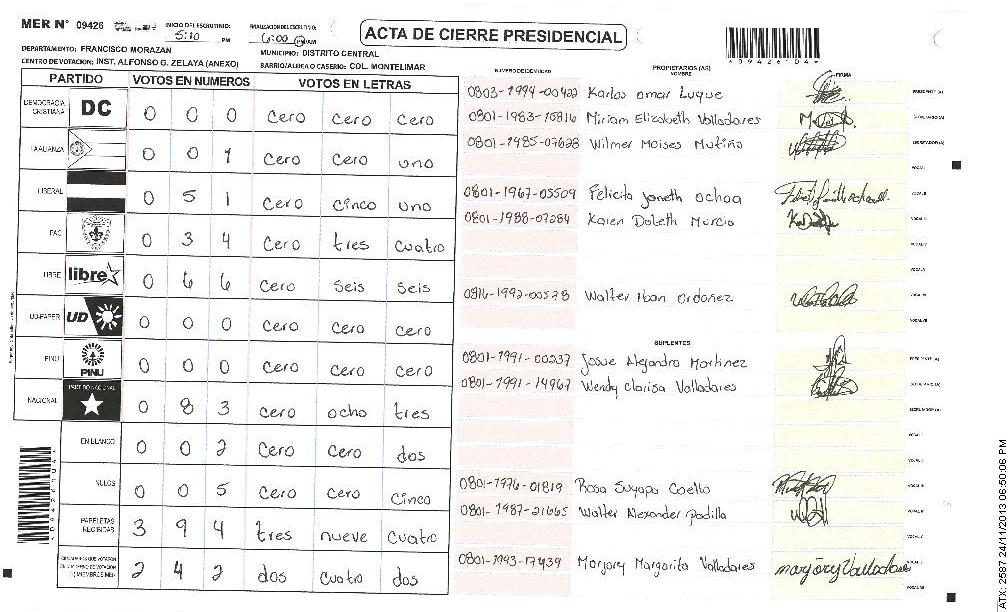 MER N° 09426
INICIO DEL ESCRUTINIO:
5:10 PM
FINALIZACION DEL ESCRUTINIO:
6:00 PM/AM
ACTA DE CIERRE PRESIDENCIAL
*09426104*
DEPARTAMENTO: FRANCISCO MORAZAN
MUNICIPIO: DISTRITO CENTRAL
CENTRO DE VOTACION: INST. ALFONSO G. ZELAYA (ANEXO)
BARRIO/ALDEA O CASERIO: COL. MONTELIMAR
PARTIDO VOTOS EN NUMEROS VOTOS EN LETRAS
DEMOCRACIA CRISTIANA DC 0 0 0 cero cero cero
LA ALIANZA 0 0 1 cero cero uno
LIBERAL 0 5 1 cero cinco uno
PAC 0 3 4 cero tres cuatro
LIBRE libre 0 6 6 cero seis seis
UD-FAPER UD 0 0 0 cero cero cero
PINU PINU 0 0 0 cero cero cero
NACIONAL PARTIDO NACIONAL 0 8 3 cero ocho tres
EN BLANCO 0 0 2 cero cero dos
NULOS 0 0 5 cero cero cinco
PAPELETAS RECIBIDAS 3 9 4 tres nueve cuatro
CIUDADANOS QUE VOTARON 2 4 2 dos cuatro dos
NUMERO DE IDENTIDAD PROPIETARIOS (AS) NOMBRE FIRMA
0803-1994-00422 Karlos omar Luque PRESIDENTE (A)
0801-1983-15816 Miriam Elizabeth Valladares SECRETARIO (A)
0801-1985-07628 Wilmer Moises Mutiño ESCRUTADOR (A)
VOCAL I
0801-1967-05509 Felicita Janeth Ochoa VOCAL II
0801-1988-07284 Karen Daleth Murcia VOCAL III
VOCAL IV
VOCAL V
0816-1992-00528 Walter Iban Ordoñez VOCAL VI
VOCAL VII
SUPLENTES
0801-1991-00237 Josue Alejandro Martinez PRESIDENTE (A)
0801-1991-14967 Wendy Clarisa Valladares SECRETARIO (A)
ESCRUTADOR (A)
VOCAL I
VOCAL II
0801-1976-01819 Rosa Suyapa Coello VOCAL III
0801-1987-21665 Walter Alexander Padilla VOCAL IV
VOCAL V
0801-1993-17439 Marjory Margarita Valladares marjory Valladares
VOCAL VII
ATX 2587 24/11/2013 06:50:06 PM